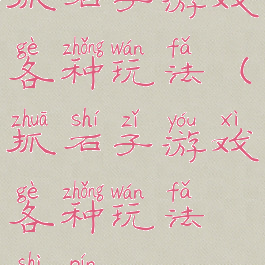 抓石子游戏
gè zhǒng wán fǎ
各种玩法（
zhuā shí zǐ yóu xì
抓石子游戏
gè zhǒng wán fǎ
各种玩法
shì pín